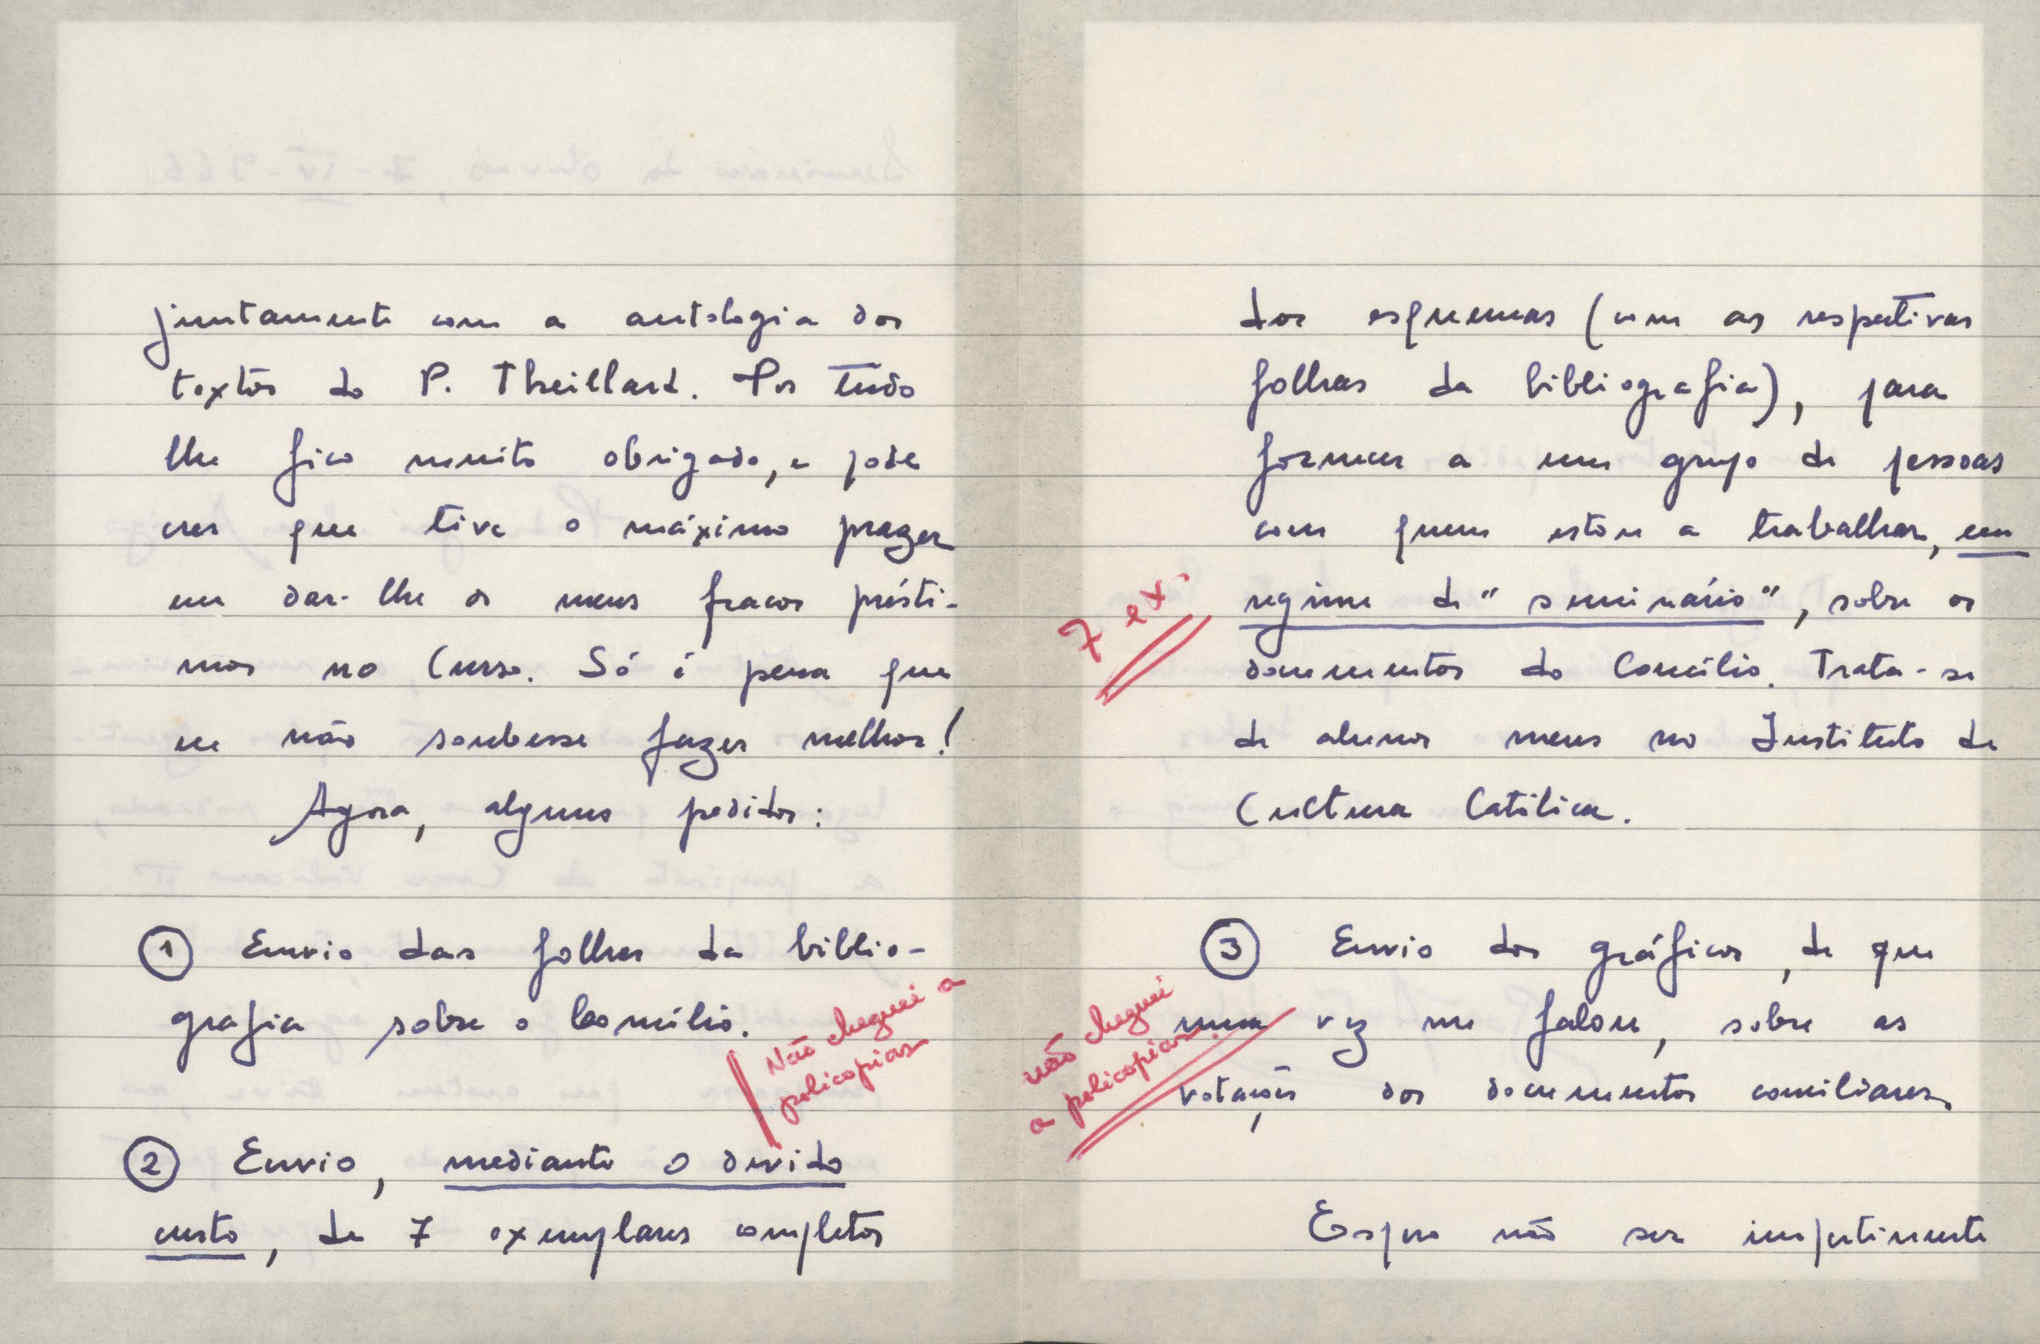 juntamente com a antologia dos
textos do P. Theillard. Por tudo
lhe fico muito obrigado, e pode
crer que tive o máximo prazer
em dar-lhe os meus fracos présti-
mos no Curso. Só é pena que
eu não soubesse fazer melhor!
Agora, alguns pedidos:
① Envio das folhas da biblio-
grafia sobre o Concílio.
Não cheguei a
policopiar
② Envio, mediante o devido
custo, de 7 exemplares completos
dos esquemas (com as respectivas
folhas da bibliografia), para
fornecer a um grupo de pessoas
com quem estou a trabalhar, em
regime de "seminário", sobre os
7 ex.
documentos do Concílio. Trata-se
de alunos meus no Instituto de
Cultura Católica.
③ Envio dos gráficos, de que
uma vez me falou, sobre as
não cheguei
a policopiar
votações dos documentos conciliares.
Espero não ser impertinente